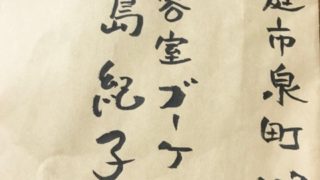 庭市泉町
容室ゴーケ
島紀子